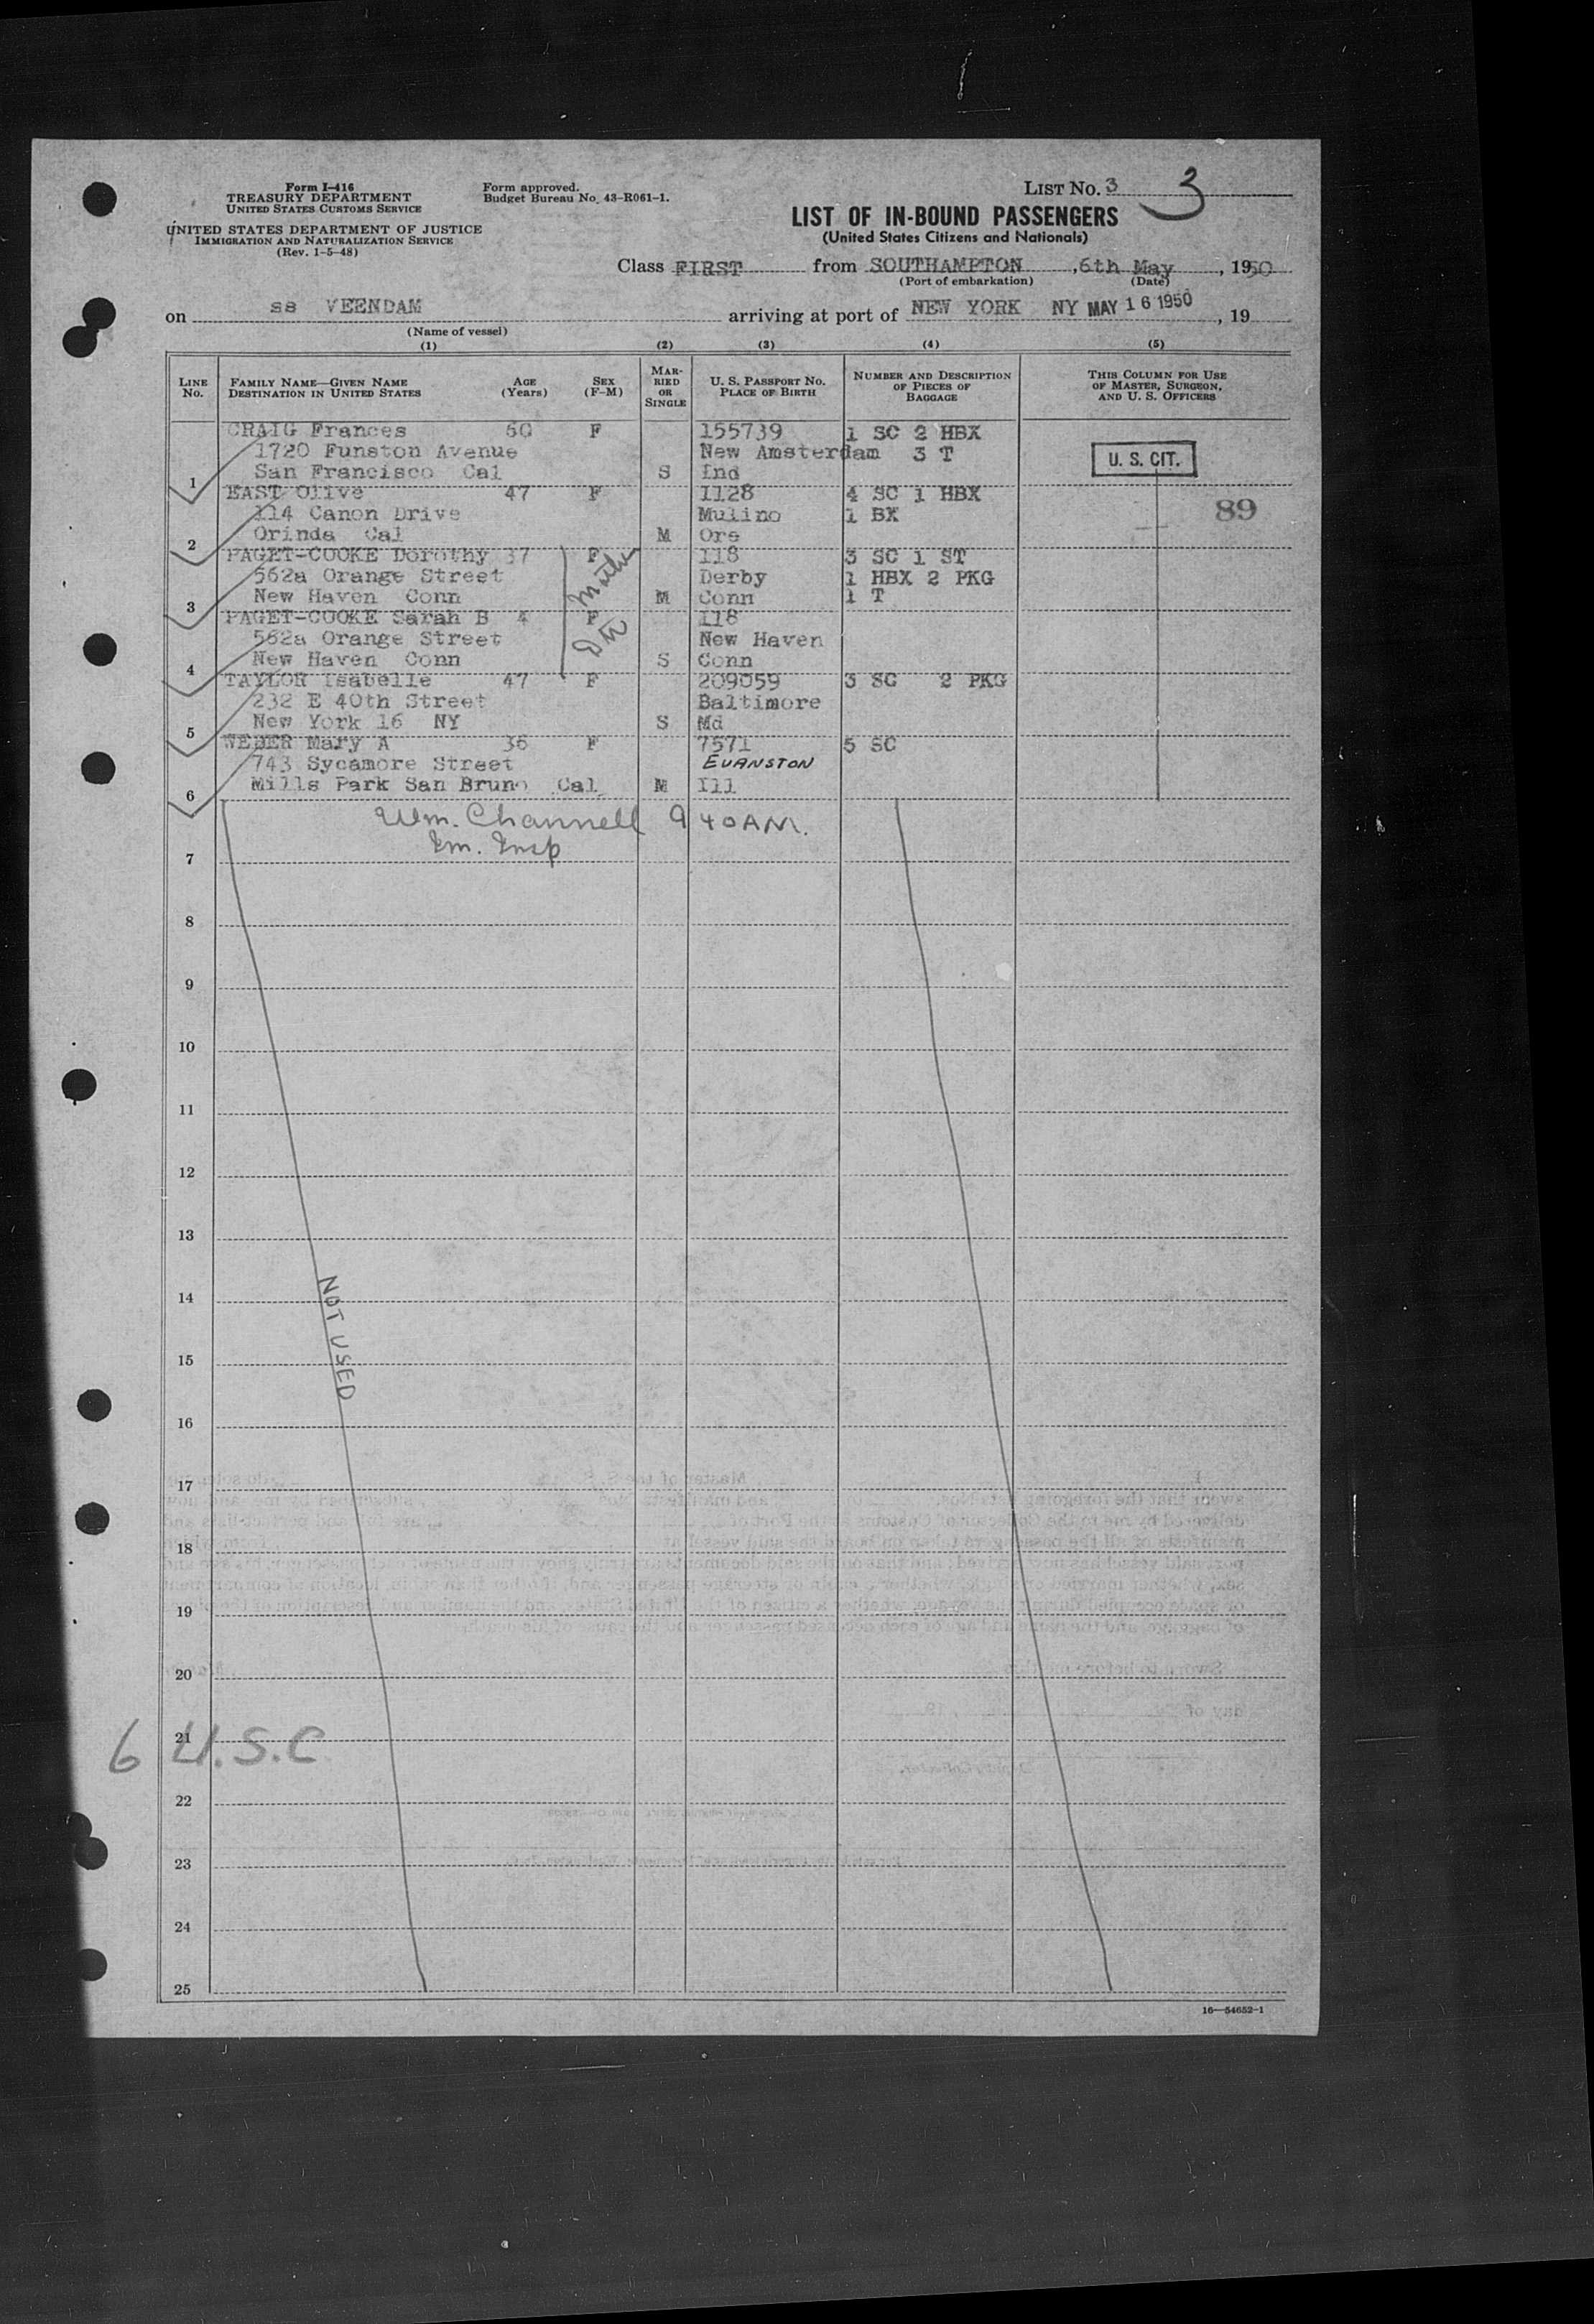 Form I-416
TREASURY DEPARTMENT
UNITED STATES CUSTOMS SERVICE
UNITED STATES DEPARTMENT OF JUSTICE
IMMIGRATION AND NATURALIZATION SERVICE
(Rev. 1-5-48)
Form approved.
Budget Bureau No. 43-R061-1.
LIST NO. 3 3
LIST OF IN-BOUND PASSENGERS
(United States Citizens and Nationals)
Class FIRST from SOUTHAMPTON , 6th May , 1950
(Port of embarkation) (Date)
on ss VEENDAM arriving at port of NEW YORK NY MAY 16 1950 , 19
(Name of vessel)
(1) (2) (3) (4) (5)
LINE No.
FAMILY NAME—GIVEN NAME
DESTINATION IN UNITED STATES
AGE (Years)
SEX (F-M)
MARRIED OR SINGLE
U. S. PASSPORT NO.
PLACE OF BIRTH
NUMBER AND DESCRIPTION OF PIECES OF BAGGAGE
THIS COLUMN FOR USE OF MASTER, SURGEON, AND U. S. OFFICERS
CRAIG Frances 60 F 155739 1 SC 2 HBX
1720 Funston Avenue New Amsterdam 3 T
1 San Francisco Cal S Ind
U. S. CIT.
EAST Olive 47 F 1128 4 SC 1 HBX
114 Canon Drive Mulino 1 BX
89
2 Orinda Cal M Ore
PAGET-COOKE Dorothy 37 F 118 3 SC 1 ST
562a Orange Street Derby 1 HBX 2 PKG
3 New Haven Conn M Conn 1 T
Mother
PAGET-COOKE Sarah B 4 F 118
562a Orange Street New Haven
4 New Haven Conn S Conn
TAYLOR Isabelle 47 F 209059 3 SC 2 PKG
232 E 40th Street Baltimore
5 New York 16 NY S Md
WEBER Mary A 36 F 7571 5 SC
743 Sycamore Street EVANSTON
6 Mills Park San Bruno Cal M Ill
Wm. Channell 9 40 AM.
Im. Insp
7
8
9
10
11
12
13
14
NOT USED
15
16
17
18
19
20
21
6 U.S.C
22
23
24
25
16—54652-1